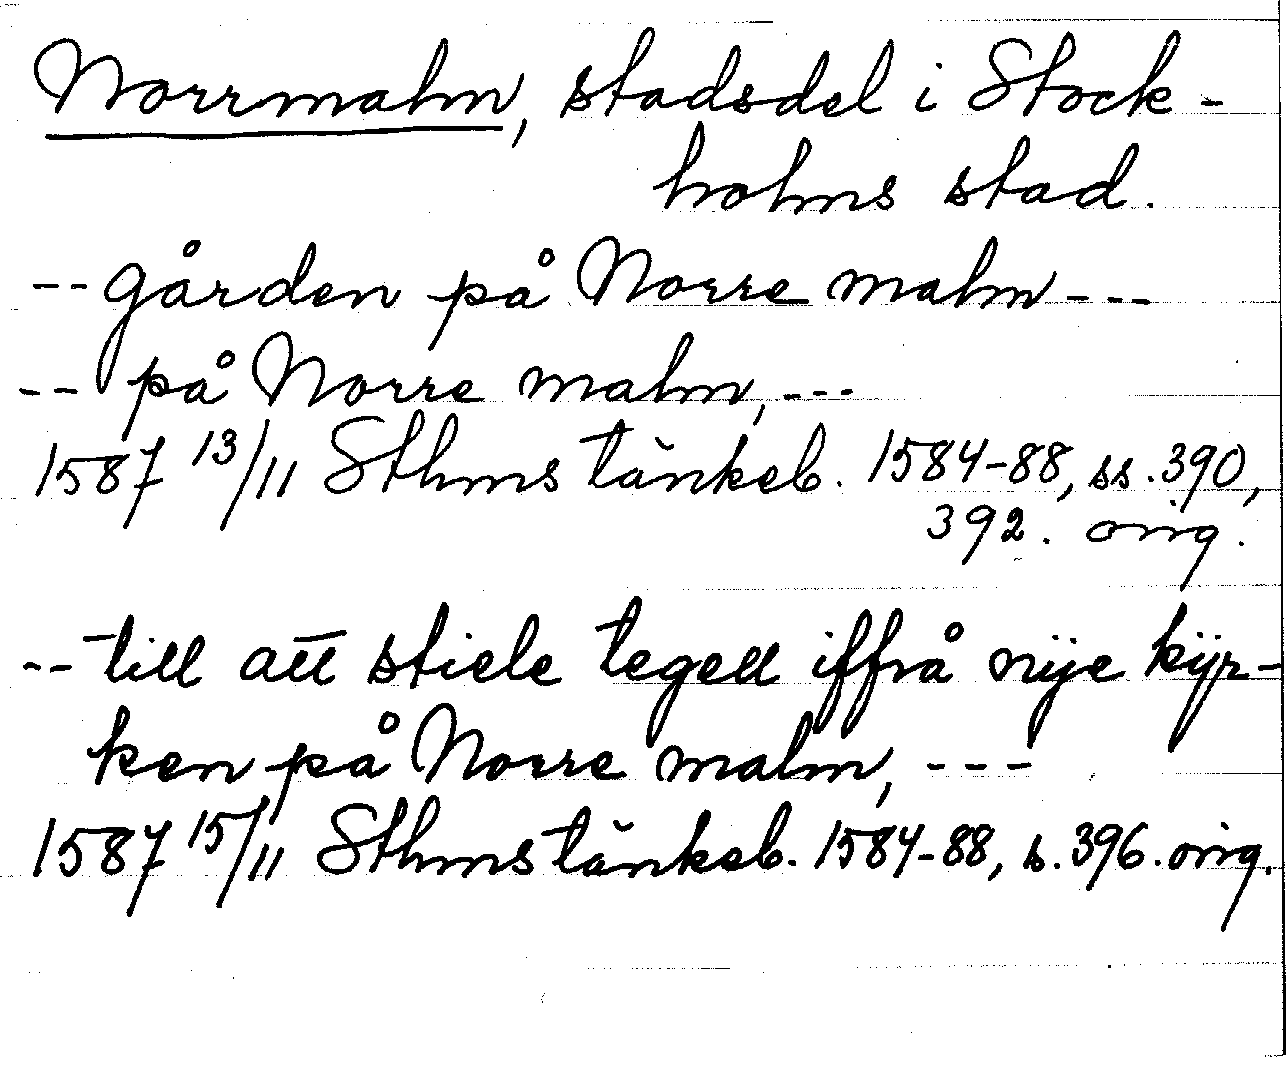 Norrmalm, stadsdel i Stock-
holms stad.
-- gården på Norre malm ---
-- på Norre malm, ---
1587 13/11 Sthms tänkeb. 1584-88, ss. 390,
392. orig.
-- till att stiele tegell iffrå nÿe kÿr-
ken på Norre malm, ---
1587 15/11 Sthms tänkeb. 1584-88, s. 396. orig.